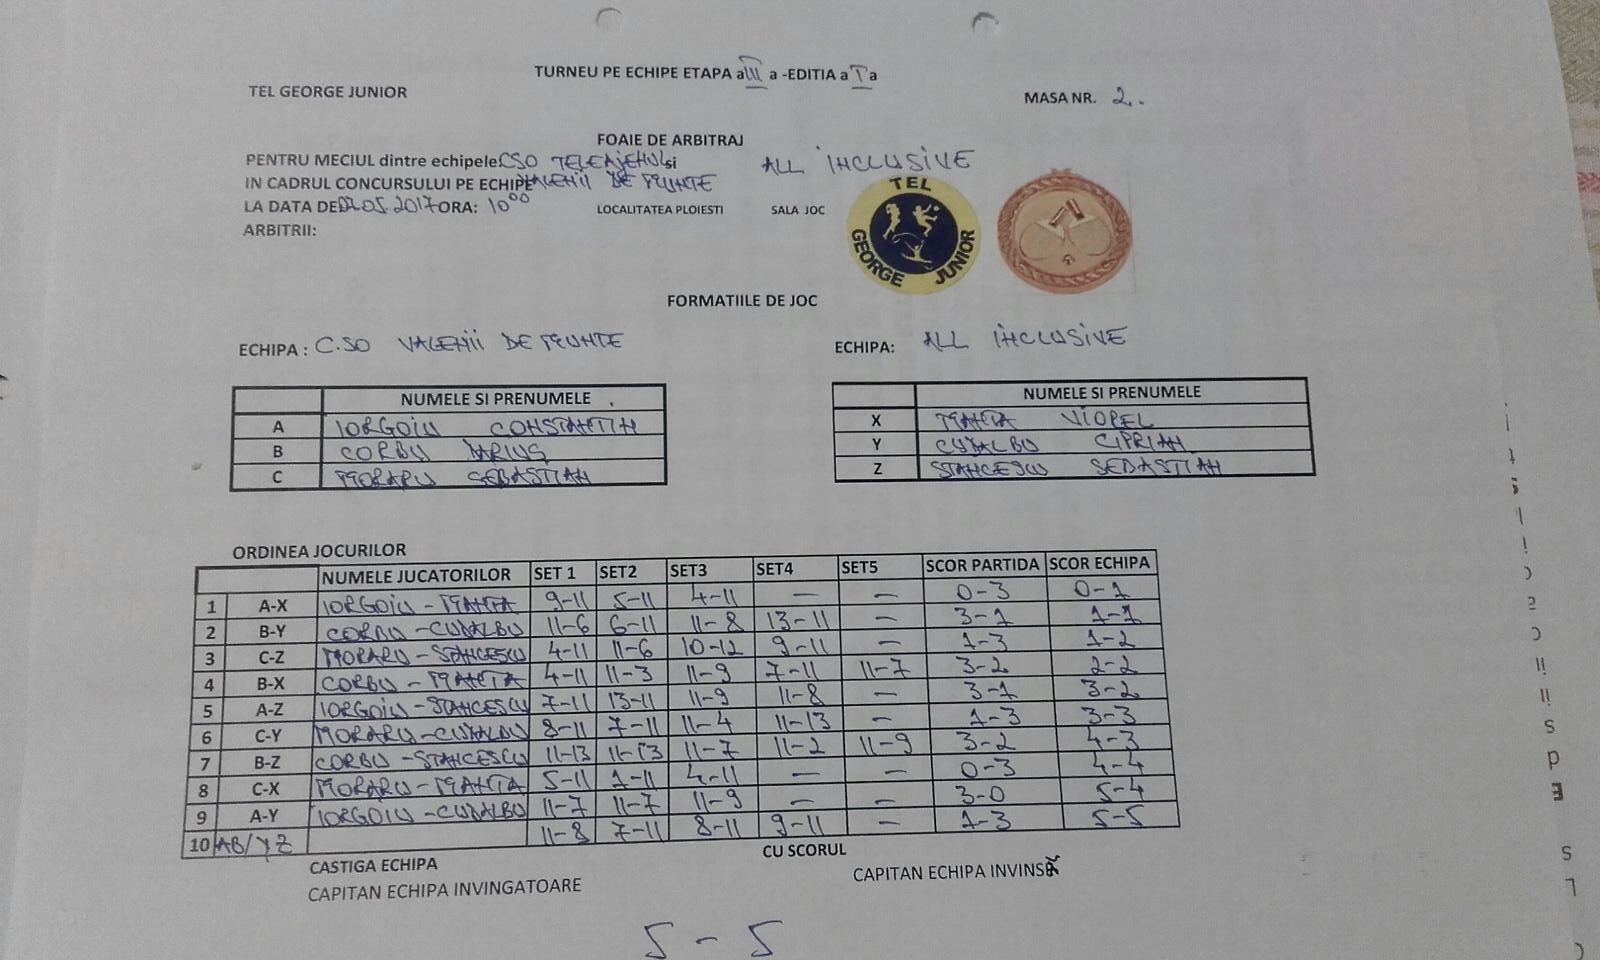 TURNEU PE ECHIPE ETAPA a III a -EDITIA a I a
TEL GEORGE JUNIOR
MASA NR. 2.
FOAIE DE ARBITRAJ
PENTRU MECIUL dintre echipele CSO TELEAJENUL si ALL INCLUSIVE
IN CADRUL CONCURSULUI PE ECHIPE VALENII DE MUNTE
LA DATA DE 07.05.2017 ORA: 10⁰⁰ LOCALITATEA PLOIESTI SALA JOC
ARBITRII:
TEL
GEORGE JUNIOR
FORMATIILE DE JOC
ECHIPA : C.SO VALENII DE MUNTE
ECHIPA: ALL INCLUSIVE
NUMELE SI PRENUMELE
A IORGOIU CONSTANTIN
B CORBU DARIUS
C MORARU SEBASTIAN
NUMELE SI PRENUMELE
X MANTA VIOREL
Y CUJALBU CIPRIAN
Z STANCESCU SEBASTIAN
ORDINEA JOCURILOR
NUMELE JUCATORILOR SET 1 SET2 SET3 SET4 SET5 SCOR PARTIDA SCOR ECHIPA
1 A-X IORGOIU - MANTA 9-11 5-11 4-11 — — 0-3 0-1
2 B-Y CORBU - CUJALBU 11-6 6-11 11-8 13-11 — 3-1 1-1
3 C-Z MORARU - STANCESCU 4-11 11-6 10-12 9-11 — 1-3 1-2
4 B-X CORBU - MANTA 4-11 11-3 11-9 7-11 11-7 3-2 2-2
5 A-Z IORGOIU - STANCESCU 7-11 13-11 11-9 11-8 — 3-1 3-2
6 C-Y MORARU - CUJALBU 8-11 7-11 11-4 11-13 — 1-3 3-3
7 B-Z CORBU - STANCESCU 11-13 11-13 11-7 11-2 11-9 3-2 4-3
8 C-X MORARU - MANTA 5-11 1-11 4-11 — — 0-3 4-4
9 A-Y IORGOIU - CUJALBU 11-7 11-7 11-9 — — 3-0 5-4
10 AB/YZ 11-8 7-11 8-11 9-11 — 1-3 5-5
CASTIGA ECHIPA CU SCORUL
CAPITAN ECHIPA INVINGATOARE CAPITAN ECHIPA INVINSĂ
5 - 5